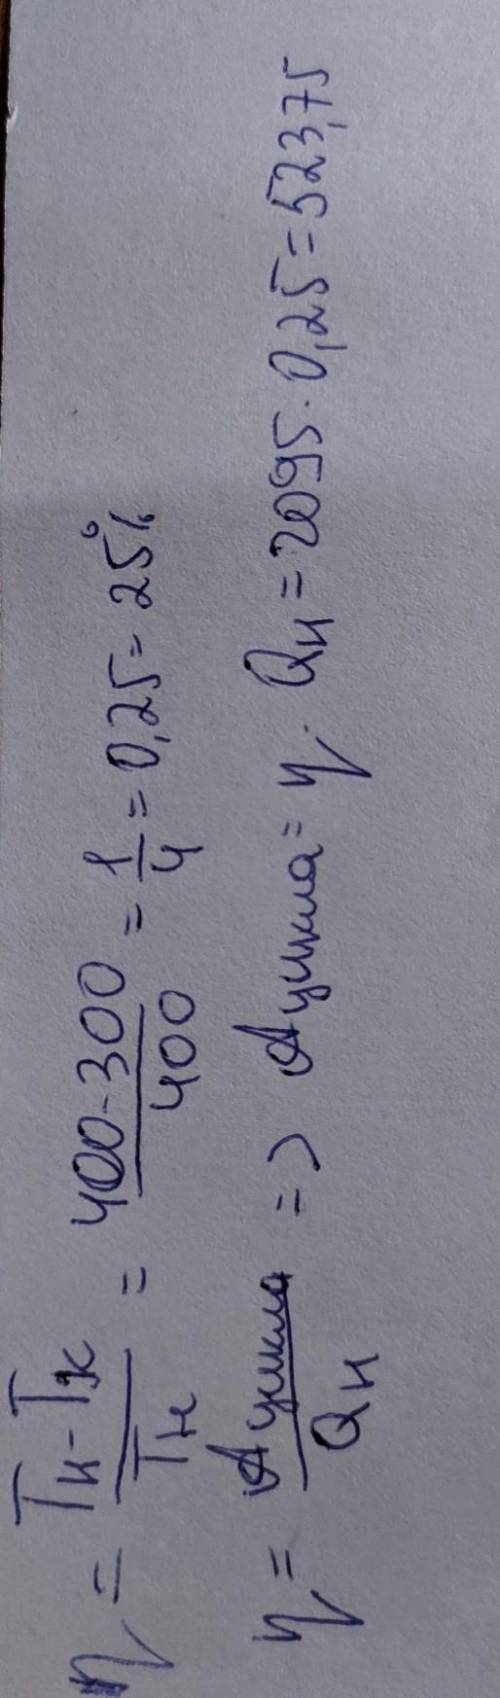 η = Tн - Tх / Tн = 400 - 300 / 400 = 1/4 = 0,25 = 25%
η = Aцикла / Qн => Aцикла = η · Qн = 2095 · 0,25 = 523,75